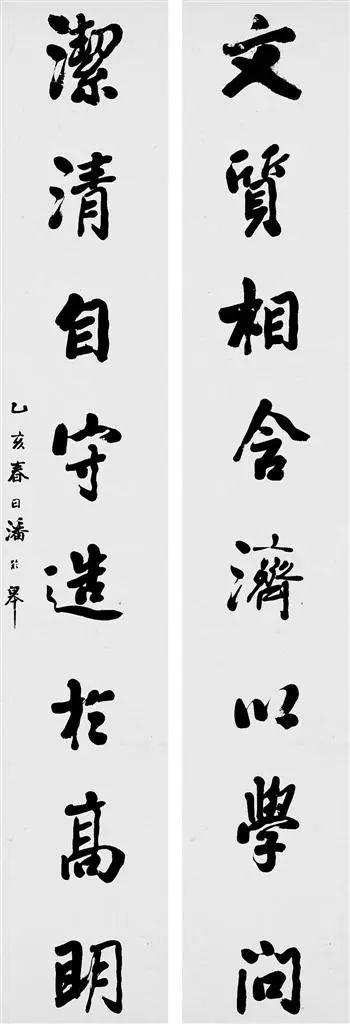 文質相含濟以學問
潔清自守造於高明
乙亥春日潘於皋